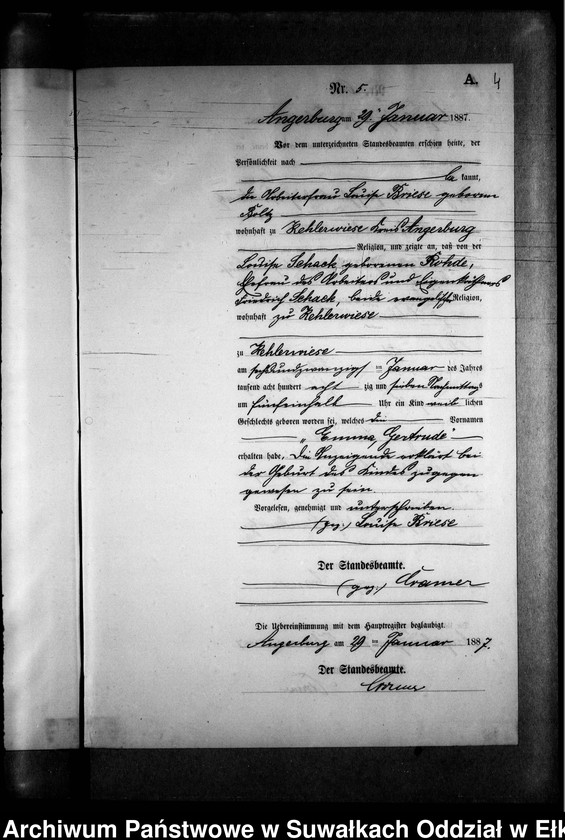 A. 4
Nr. 5.
Angerburg am 29. Januar 1887.
Vor dem unterzeichneten Standesbeamten erschien heute, der
Persönlichkeit nach
be kannt,
die Arbeiterfrau Louise Briese geborene
Boltz
wohnhaft zu Kehlerwiese Kreis Angerburg
Religion, und zeigte an, daß von der
Louise Schack geborenen Rohde,
Ehefrau des Arbeiters und Eigenkäthners
Friedrich Schack, beide evangelischer Religion,
wohnhaft zu Kehlerwiese
zu Kehlerwiese
am sechsundzwanzigsten Januar des Jahres
tausend acht hundert acht zig und sieben Nachmittags
um fünfeinhalb Uhr ein Kind weib lichen
Geschlechts geboren worden sei, welches die Vornamen
„Emma, Gertrude“
erhalten habe. Die Anzeigende erklärt bei
der Geburt des Kindes zugegen
gewesen zu sein.
Vorgelesen, genehmigt und unterschrieben.
(gez.) Louise Briese
Der Standesbeamte.
(gez.) Cramer
Die Uebereinstimmung mit dem Hauptregister beglaubigt.
Angerburg am 29 ten Januar 1887.
Der Standesbeamte.
Cramer
Archiwum Państwowe w Suwałkach Oddział w Ełk